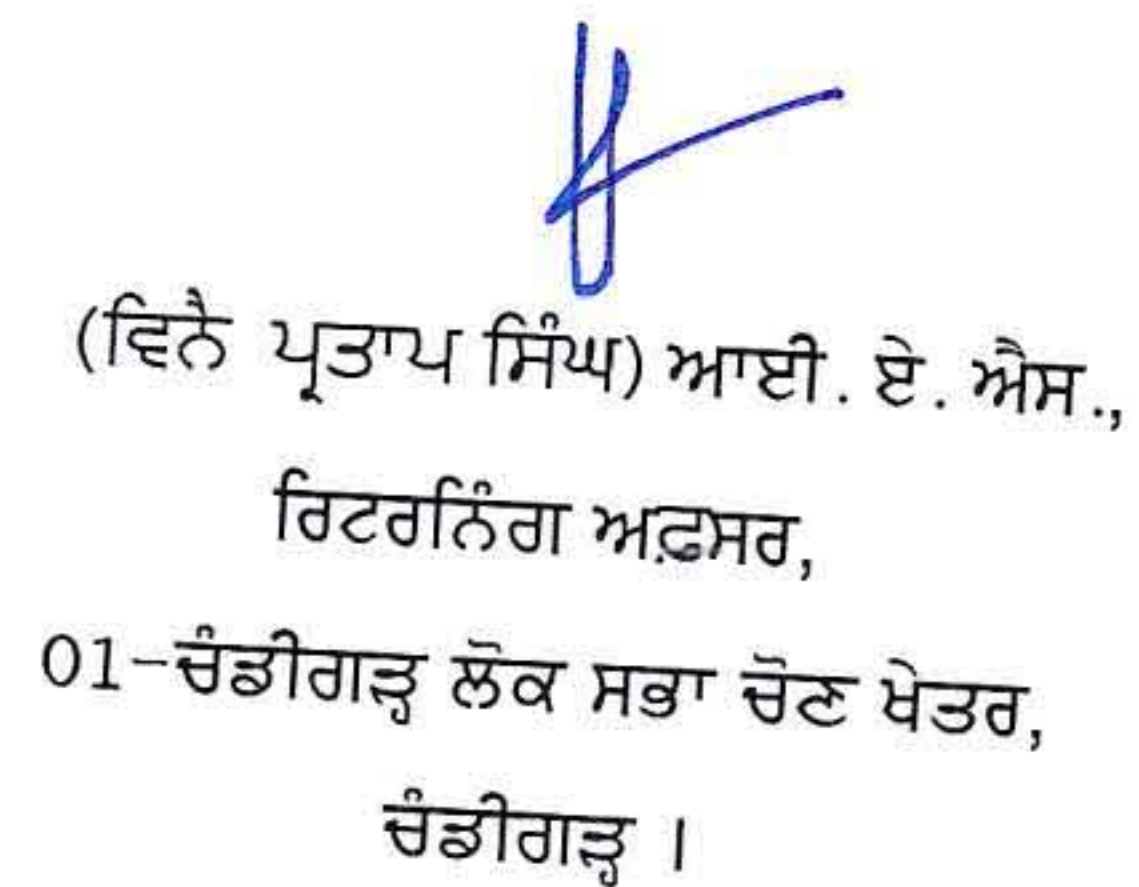 (ਵਿਨੈ ਪ੍ਰਤਾਪ ਸਿੰਘ) ਆਈ. ਏ. ਐਸ.,
ਰਿਟਰਨਿੰਗ ਅਫ਼ਸਰ,
01-ਚੰਡੀਗੜ੍ਹ ਲੋਕ ਸਭਾ ਚੋਣ ਖੇਤਰ,
ਚੰਡੀਗੜ੍ਹ ।